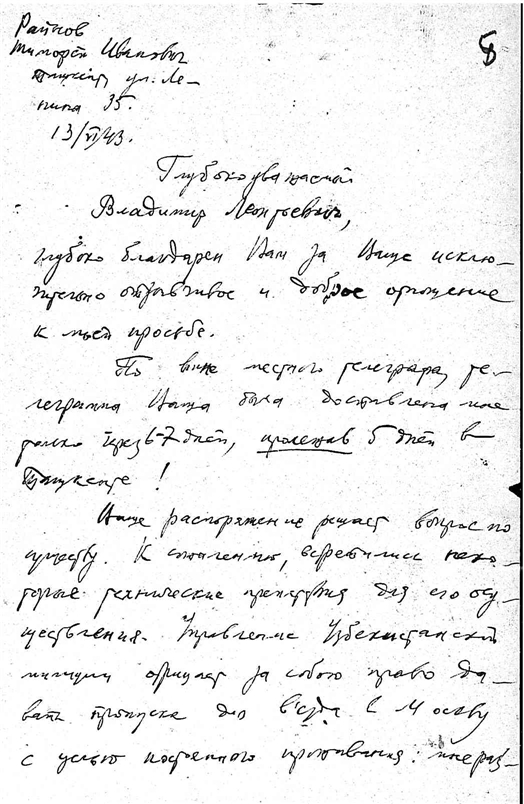 Райнов
Тимофей Иванович
Ташкент, ул. Ле-
нина 35.
13/VI 43.
8
Глубокоуважаемый
Владимир Леонтьевич,
глубоко благодарен Вам за Ваше исклю-
чительно отзывчивое и доброе отношение
к моей просьбе.
По вине местного телеграфа, те-
леграмма Ваша была доставлена мне
только через 6-7 дней, пролежав 5 дней в
Ташкенте!
Ваше распоряжение решает вопрос по
существу. К сожалению, встретились неко-
торые технические препятствия для его осу-
ществления. Управление Узбекистанской
милиции отрицает за собою право да-
вать пропуска для въезда в Москву
с целью постоянного проживания: